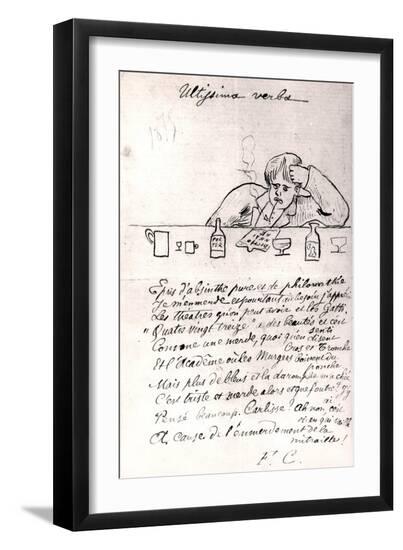 Ultissima verba
187
POR
TER
Epris d'absinthe pure et de philomathie
Je m'emmerde et pourtant au besoin j'apprécie
Les théâtres qu'on peut avoir et les Gatti.
"Quatre vingt treize" a des beautés et c'est senti
Comme une merde, quoi qu'en disent
Cros et Tronche
Et l'Académie où les Murgers boivent du
ponche
Mais plus de bleus et la daromphe m'a chié
C'est triste et merde alors et que foutre? j'y
Pensé beaucoup. Carlisse? Ah non, c'est
rien qui
A cause de l'emmerdement de la
mitraille!
F. C.